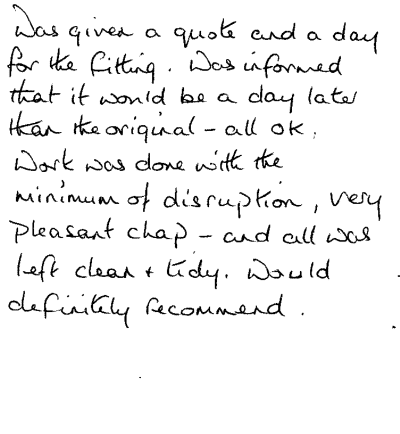 Was given a quote and a day
for the fitting. Was informed
that it would be a day later
than the original - all ok.
Work was done with the
minimum of disruption, very
pleasant chap - and all was
left clean + tidy. Would
definitely recommend.